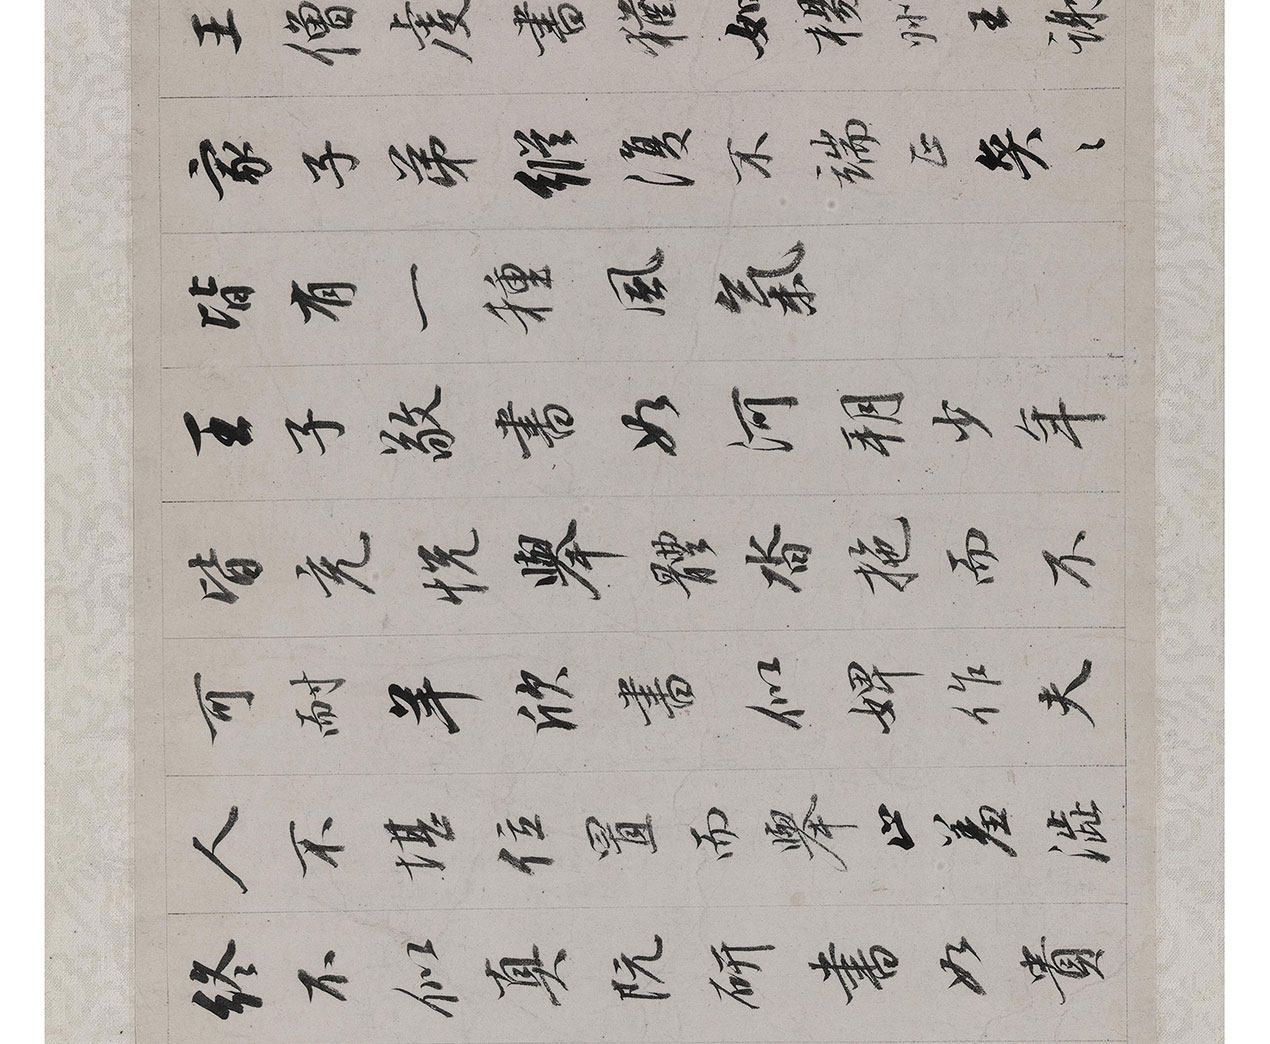 王僧虔書猶如楊州王謝
家子弟縱復不端正奕〻
皆有一種風氣
王子敬書如河朔少年
皆充悅舉體沓拖而不
可耐羊欣書似婢作夫
人不堪位置而舉止羞澀
終不似真阮研書如貴